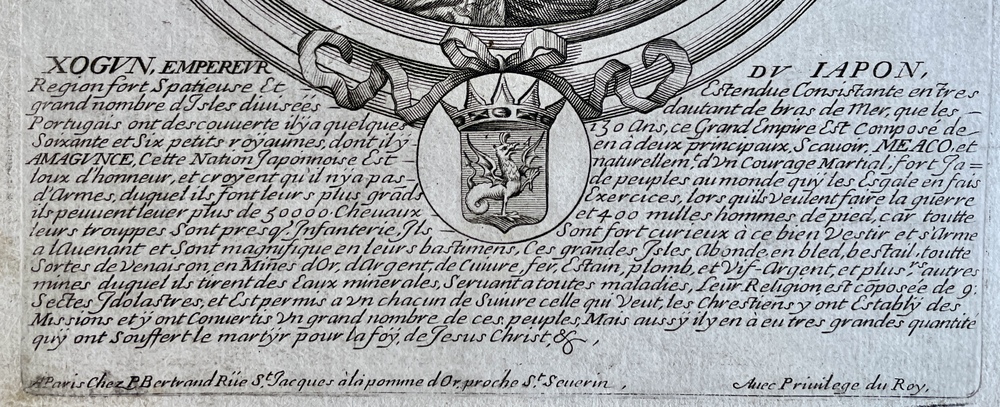 XOGVN, EMPEREVR DV IAPON,
Region fort Spatieuse Et Estendue Consistante en tres
grand nombre d'Isles diuiseés dautant de bras de Mer, que les
Portugais ont descouuerte il ÿ a quelques 150 Ans, ce Grand Empire Est Composé de
Soixante et Six petits röyaumes, dont il ÿ en à deux principaux, Scauoir, MEACO, et
AMAGVNCE, Cette Nation Japonnoise Est naturellem.t d'Vn Courage Martial, fort Ja=
loux d'honneur, et croyent qu'il n'ÿ a pas de peuples au monde quÿ les Esgale en fais
d'Armes, duquel ils font leurs plus grads Exercices, lors quils veulent faire la guerre
ils peuuent leuer plus de 50000 Cheuaux et 400 milles hommes de pied, car toutte
leurs trouppes Sont presq; Infanterie, Ils Sont fort curieux à ce bien Vestir et s'Arme
a l'Auenant et Sont magnifique en leurs bastimens, Ces grandes Isles Abonde, en bled, bestail, toutte
Sortes de Venaison, en Mines d'Or, d'Argent, de Cuiure, fer, Estain, plomb, et Vif-Argent, et plus.rs autres
mines duquel ils tirent des Eaux minerales, Seruant a toutes maladies, Leur Religion est cõposée de 9.
Sectes Jdolastres, et Est permis a Vn chacun de Suiure celle qui Veut, les Chrestiens y ont Establÿ des
Missions et ÿ ont Conuertis Vn grand nombre de ces peuples, Mais aussÿ il y en à eu tres grandes quantite
quÿ ont Souffert le martÿr pour la föÿ, de Jesus Christ, &,
A Paris Chez P. Bertrand Rüe S.t Jacques à la pomme d'Or, proche S.t Seuerin, Auec Priuilege du Roy,